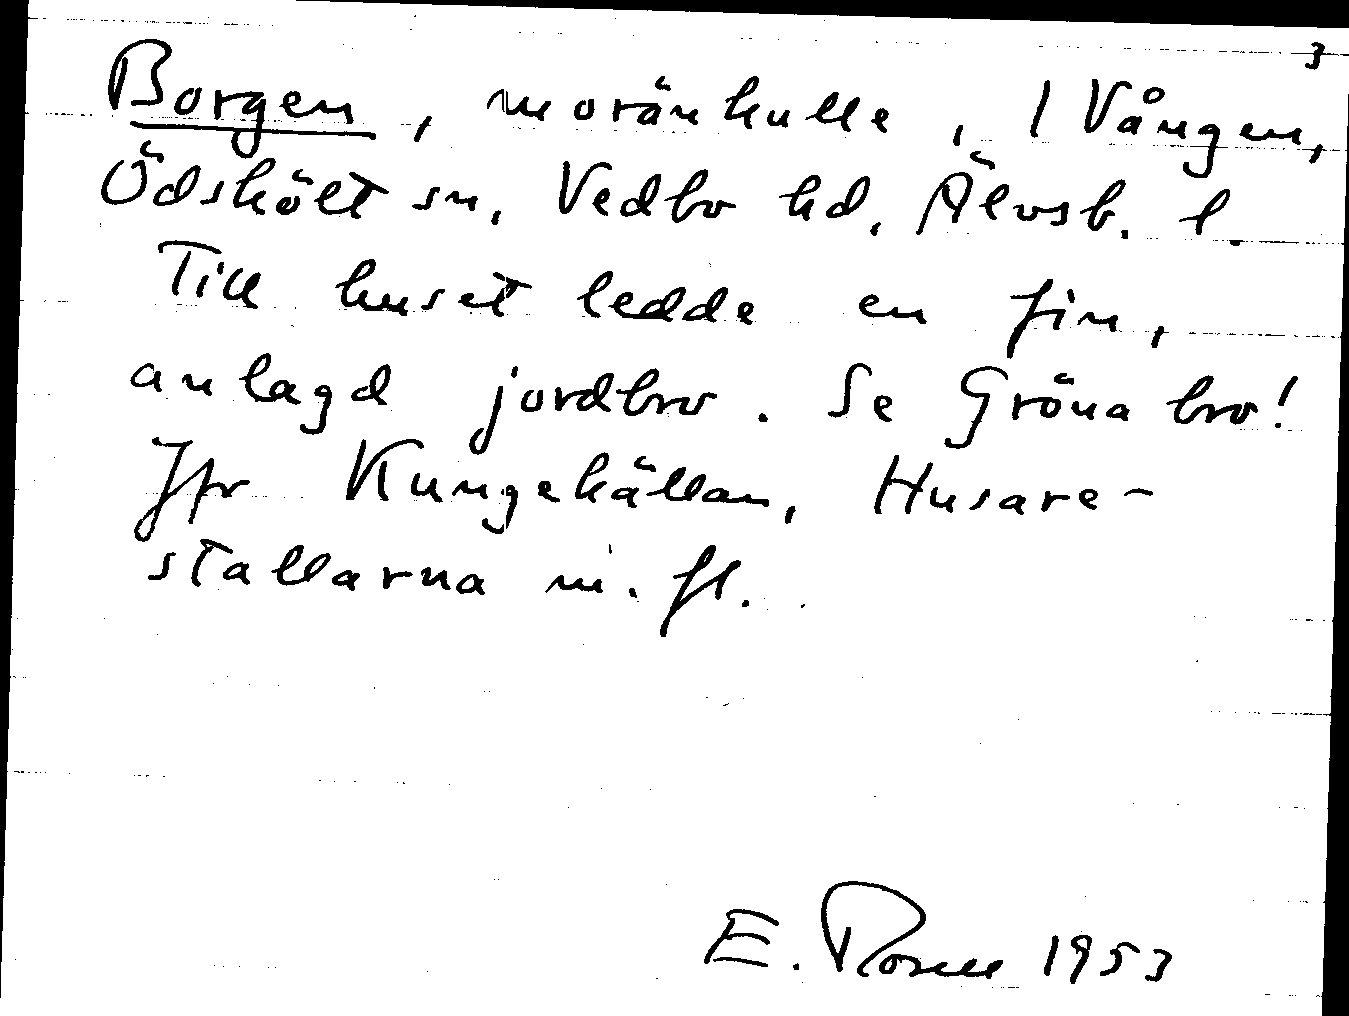 3
Borgen, moränkulle, 1 Vången,
Ödskölt sn, Vedbo hd, Älvsb. l.
Till huset ledde en fin,
anlagd jordbro. Se Gröna bro!
Jfr Kungekällan, Husare-
stallarna m. fl.
E. Rosell 1953